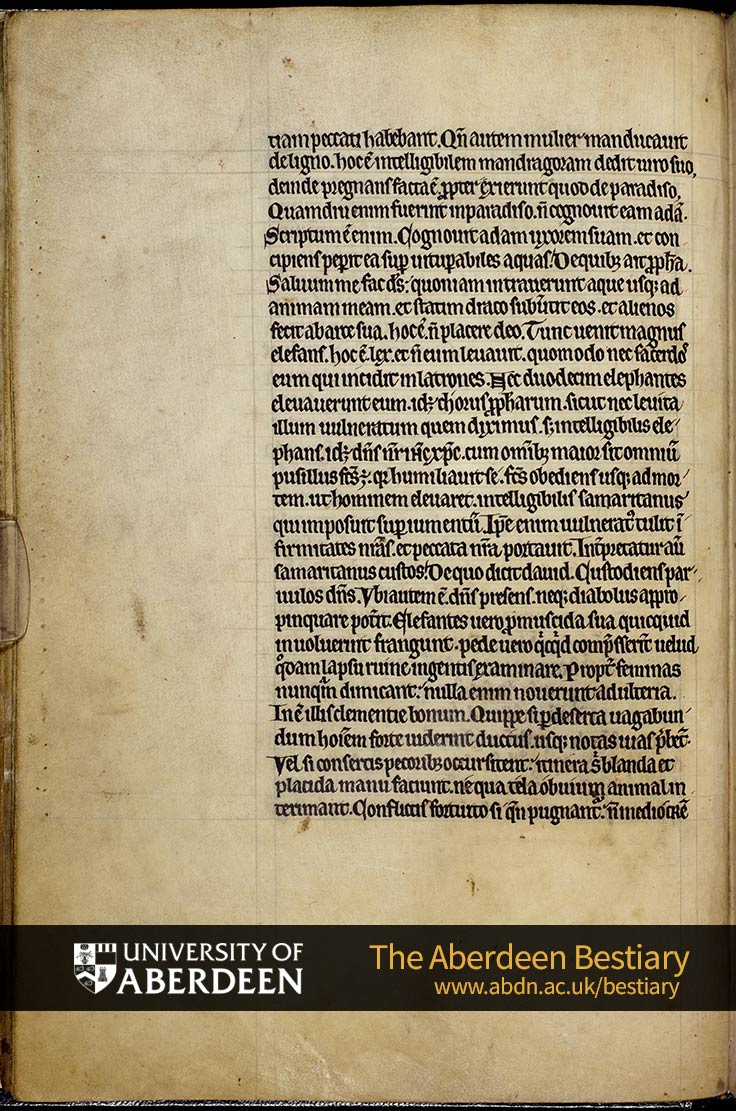 tiam peccati habebant. Qn̄ autem mulier manducauit
de ligno. hoc ē intelligibilem mandragoram dedit uiro suo,
deinde pregnans facta ē, ꝓpter exierunt quod de paradiso,
Quamdiu enim fuerint in paradiso. n̄ cognouit eam adā.
Scriptum ē enim. Cognouit adam uxorem suam. et con
cipiens peperit ea suꝑ uituꝑabiles aquas. De quibꝫ ait ꝓph̄a.
Saluum me fac dS̄. quoniam intrauerunt aque usqꝫ ad
animam meam. et statim draco subūtit eos. et alienos
fecit ab arce sua. hoc ē. n̄ placere deo. Tunc uenit magnus
elefans. hoc ē lex. et n̄ eum leuauit. quomodo nec sacerdos
eum qui incidit in latrones. Nec duodecim elephantes
eleuauerunt eum. idꝫ chorus ꝓph̄arum. sicut nec leuita
illum uulneratum quem diximus. sꝫ intelligibilis ele
phans. idꝫ dn̄s nr̄ ih̄c xp̄c. cum omībꝫ maior sit omniū
pusillus fcs̄ ē. qꝛ humiliauit se. fcs̄ obediens usqꝫ ad mor
tem. ut hominem eleuaret. intelligibilis samaritanus
qui imposuit suꝑ iumentū. Ip̄e enim uulneratꝰ tulit ī
firmitates nr̄as. et peccata nr̄a portauit. Int̄pretatur aū
samaritanus custos. De quo dicit dauid. Custodiens par
uulos dn̄s. Vbi autem ē. dn̄s presens. neqꝫ diabolus appro
pinquare potīt. Elefantes uero ꝓmuscida sua quicquid
inuoluerint frangunt. pede uero qicqd comp̄sserīt uelud
qodam lapsu ruine ingentis examinare. Propt̄ feminas
nunqm̄ dimicant. nulla enim nouerunt adulteria.
In ē illis clementie bonum. Quippe si ꝑ deserta uagabun
dum hoīem forte uiderint ductus. usqꝫ notas uias p̄bēt.
Vel si consertis pecoribꝫ occursitent. itinera s̄ blanda et
placida manu faciunt. ne qua tela obuium animal in
terimant. Conflictis fortuito si qn̄ pugnant. n̄ mediocrē
UNIVERSITY OF
ABERDEEN
The Aberdeen Bestiary
www.abdn.ac.uk/bestiary